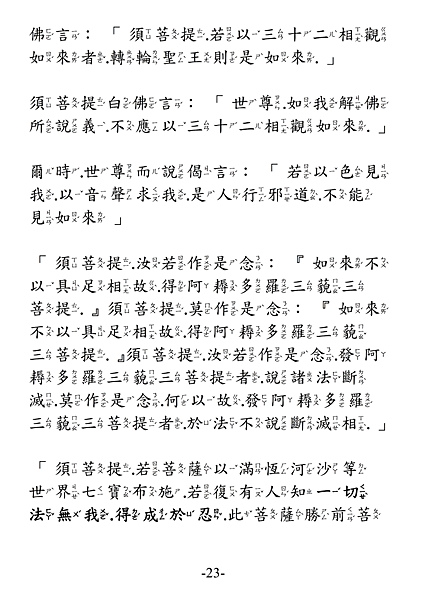 佛言：「須菩提.若以三十二相觀
如來者.轉輪聖王則是如來.」
須菩提白佛言：「世尊.如我解佛
所說義.不應以三十二相觀如來.」
爾時.世尊而說偈言：「若以色見
我.以音聲求我.是人行邪道.不能
見如來.」
「須菩提.汝若作是念：『如來不
以具足相故.得阿耨多羅三藐三
菩提.』須菩提.莫作是念：『如來
不以具足相故.得阿耨多羅三藐
三菩提.』須菩提.汝若作是念.發阿
耨多羅三藐三菩提者.說諸法斷
滅.莫作是念.何以故.發阿耨多羅
三藐三菩提者.於法不說斷滅相.」
「須菩提.若菩薩以滿恆河沙等
世界七寶布施.若復有人知一切
法無我.得成於忍.此菩薩勝前菩
-23-